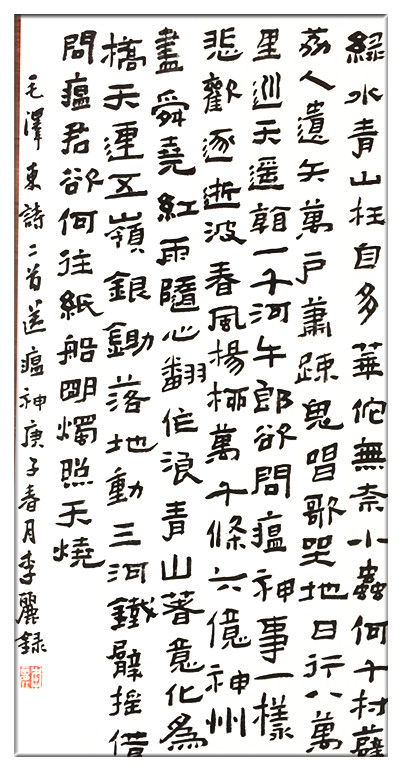 綠水青山枉自多華佗無奈小蟲何千村薜
荔人遺矢萬戶蕭疎鬼唱歌坐地日行八萬
里巡天遥看一千河牛郎欲問瘟神事一樣
悲歡逐逝波春風楊柳萬千條六億神州
盡舜堯紅雨隨心翻作浪青山著意化為
橋天連五嶺銀鋤落地動三河鐵臂摇借
問瘟君欲何往紙船明燭照天燒
毛澤東詩二首送瘟神庚子春月李麗録